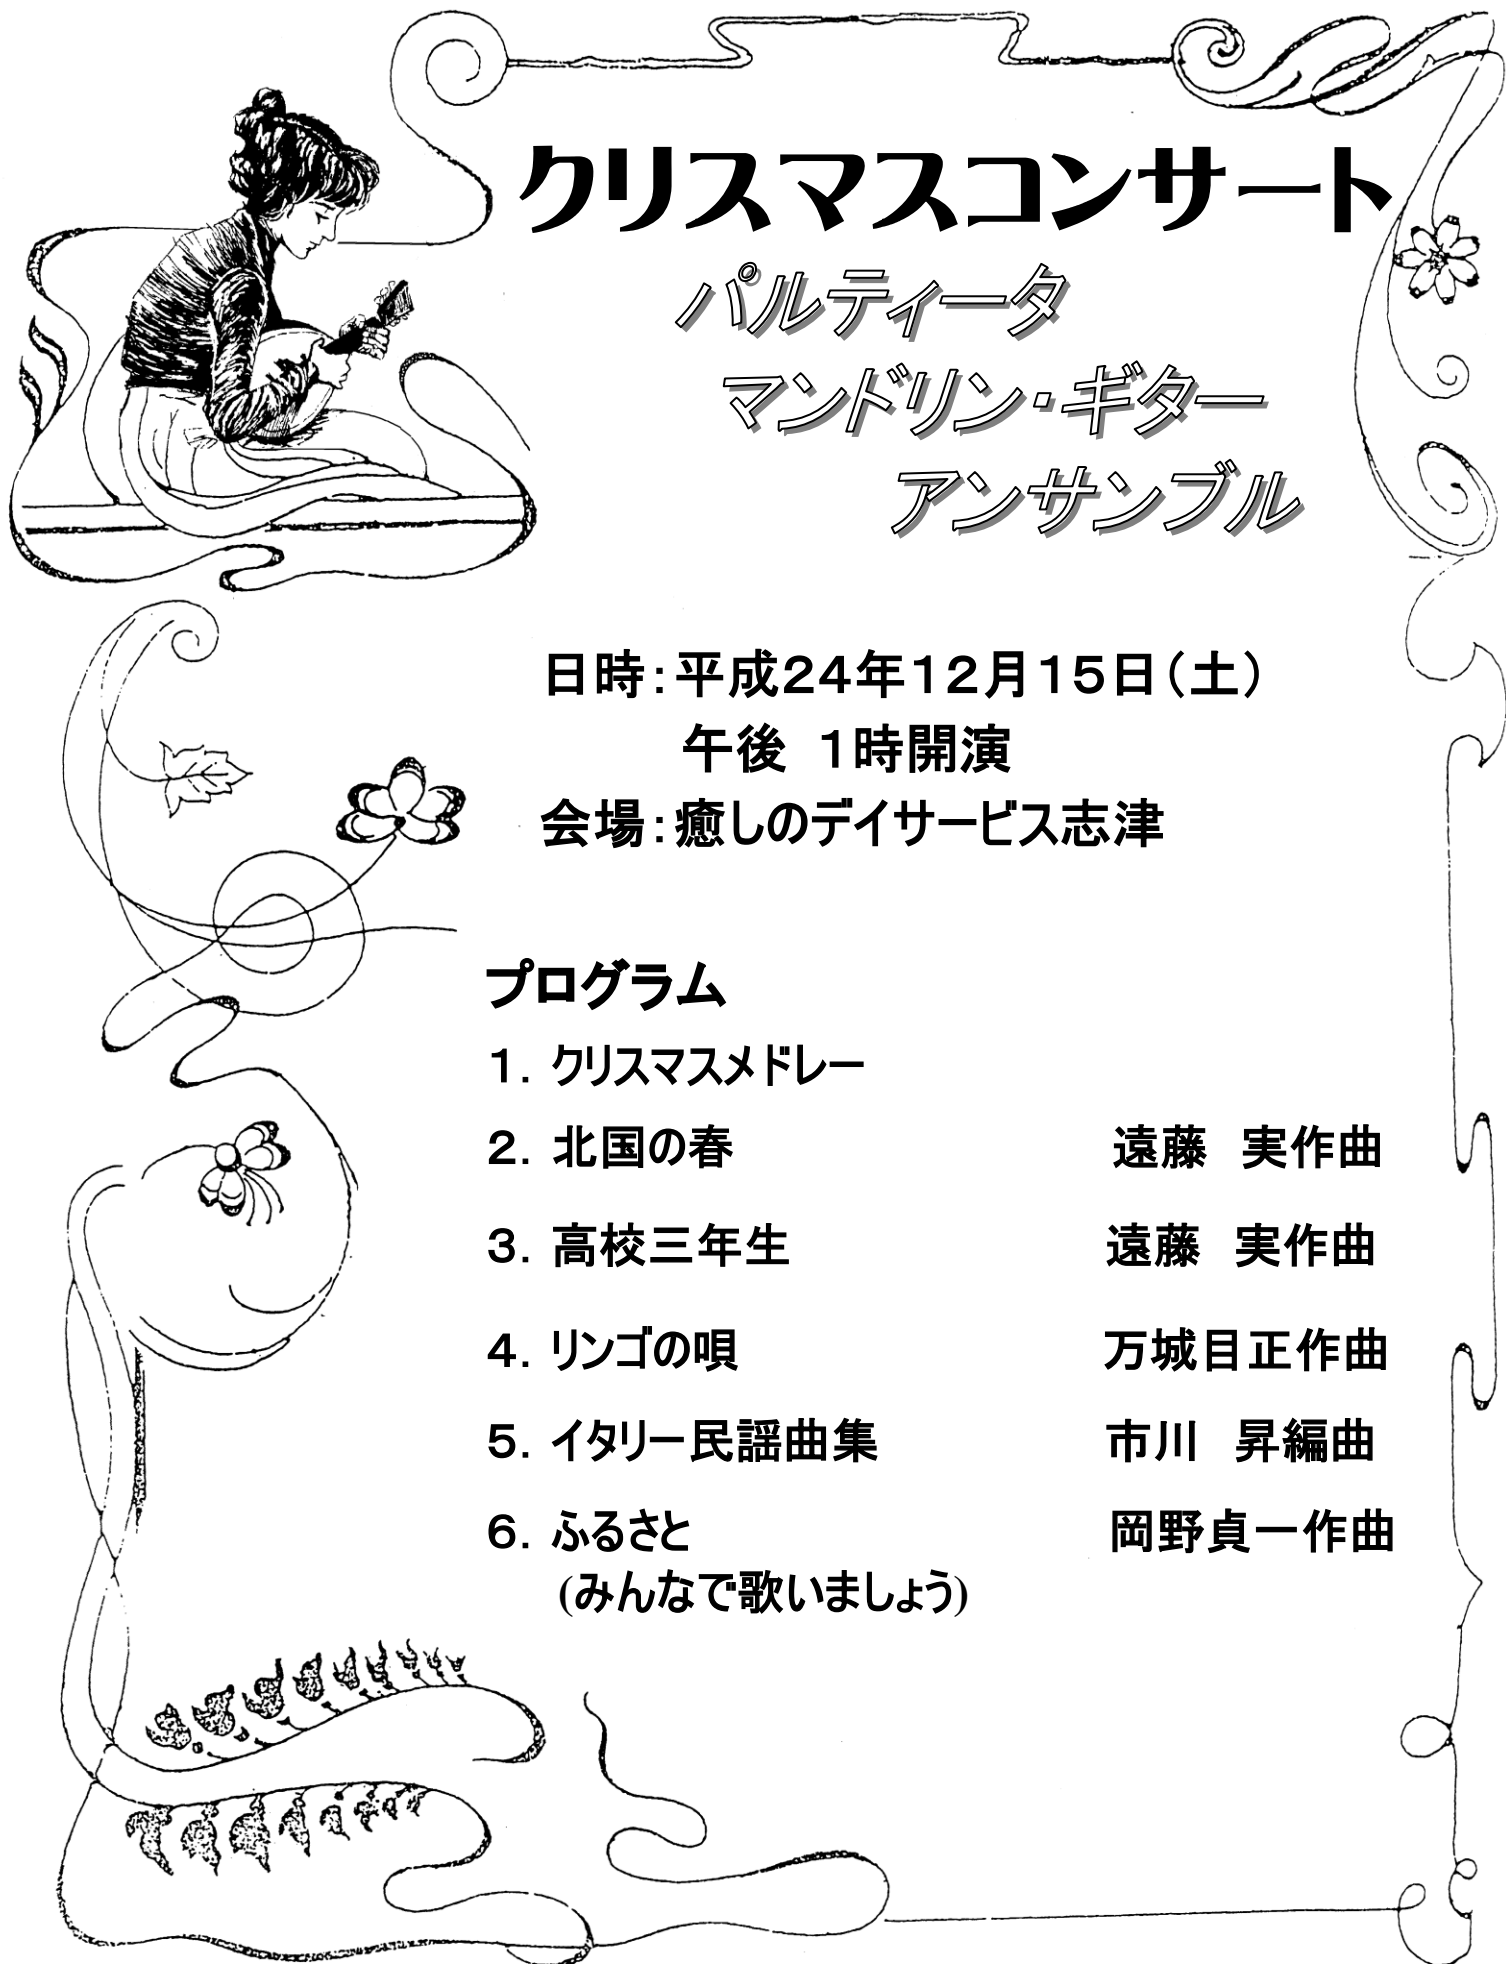 クリスマスコンサート
パルティータ
マンドリン・ギター
アンサンブル
日時：平成24年12月15日（土）
午後　1時開演
会場：癒しのデイサービス志津
プログラム
1．クリスマスメドレー
2．北国の春　遠藤　実作曲
3．高校三年生　遠藤　実作曲
4．リンゴの唄　万城目正作曲
5．イタリー民謡曲集　市川　昇編曲
6．ふるさと　岡野貞一作曲
(みんなで歌いましょう)